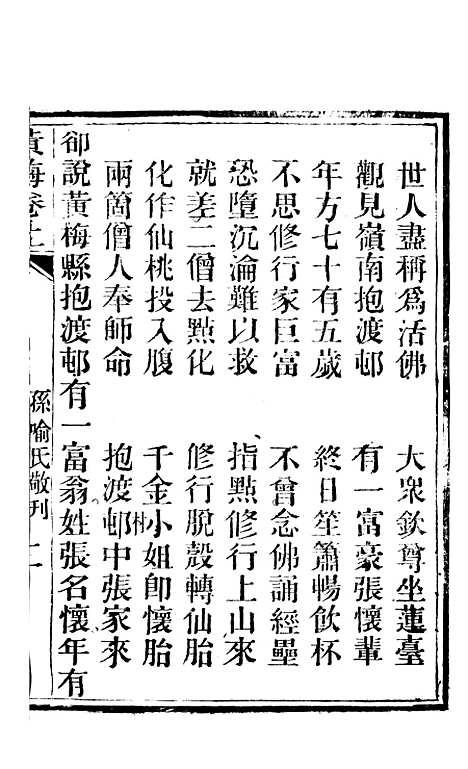 世人盡稱爲活佛　大衆欽尊坐蓮臺
觀見嶺南抱渡邨　有一富豪張懷輩
年方七十有五歲　終日笙簫暢飲杯
不思修行家巨富　不曾念佛誦經壘
恐墮沉淪難以救　指點修行上山來
就差二僧去點化　修行脫殼轉仙胎
化作仙桃投入腹　千金小姐卽懷胎
兩箇僧人奉師命　抱渡邨中張家來
村
卻說黃梅縣抱渡邨有一富翁姓張名懷年有
黃梅卷上　孫喻氏敬刊　二